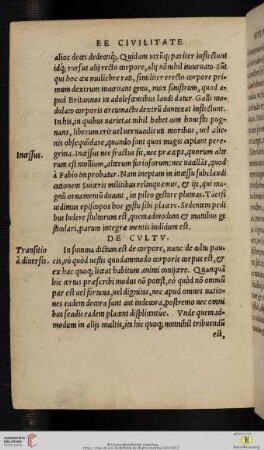 DE CIVILITATE
alios deæs dedecetq́;. Quidam utrũq; pariter inflectunt
idq́; rursus alij recto corpore, alij nõ nihil incuruato. Sũt
qui hoc æu muliebre rati, similiter erecto corpore primum
dextrum incuruant genu, mox sinistrum, quod apud
Britannos in adolescentibus laudi datur. Galli modulato
corporis circumactu dextrũ duntaxat inflectunt.
In his, in quibus uarietas nihil habet cum honesto pugnans,
liberum erit uel uernaculis uti moribus, uel alienis
obsequundare, quando sunt quos magis capiant peregrina.
Incessus. Incessus nec fractus sit, nec præceps, quorum alterum
est mollium, alterum furiosorum: nec uacillãs, quod
à Fabio improbatur. Nam ineptam in incessu subclaudicationem
Suiceris militibus relinquamus, & ijs, qui magnũ
ornamentũ ducunt, in pileo gestare plumas. Tametsi
uidimus episcopos hoc gestu sibi placere. Sedentem pedibus
ludere stultorum est, quemadmodum & manibus gesticulari,
parum integræ mentis indicium est.
DE CVLTV.
Transitio à diuersis. In summa dictum est de corpore, nunc de cultu paucis,
eò quòd uestis quodammodo corporis corpus est, &
ex hac quoq; liceat habitum animi conijcere. Quanquã
hic certus præscribi modus nõ potest, eò quòd nõ omniũ
par est uel fortuna, uel dignitas, nec apud omnes nationes
eadem decora sunt aut indecora, postremo nec omnibus
seculis eadem placent displicentue. Vnde quemadmodum
in alijs multis, ita in hic quoq; nonnihil tribuendũ
est,